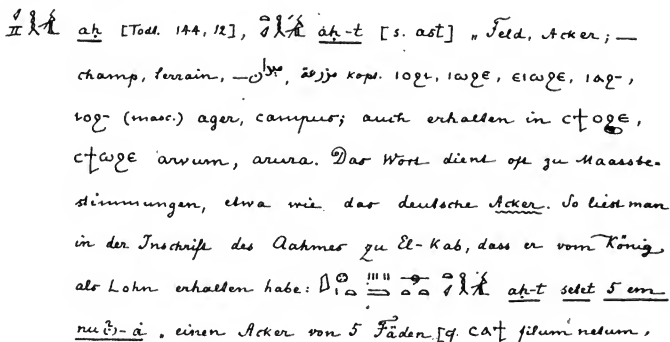 aḥ [Todt. 144, 12], aḥ-t [s. ast] „Feld, Acker; —
champ, terrain, — ميدان, مزرعة kopt. ⲓⲟϩⲓ, ⲓⲱϩⲉ, ⲉⲓⲱϩⲉ, ⲓⲁϩ-,
ⲓⲟϩ- (masc.) ager, campus; auch erhalten in ⲥϯⲟϩⲉ,
ⲥϯⲱϩⲉ arvum, arura. Das Wort dient oft zu Maassbe-
stimmungen, etwa wie das deutsche Acker. So liest man
in der Inschrift des Aahmes zu El-Kab, dass er vom König
als Lohn erhalten habe: aḥ-t setet 5 em
nu(?)-à „einen Acker von 5 Fäden [q. ⲥⲁϯ filum netum,